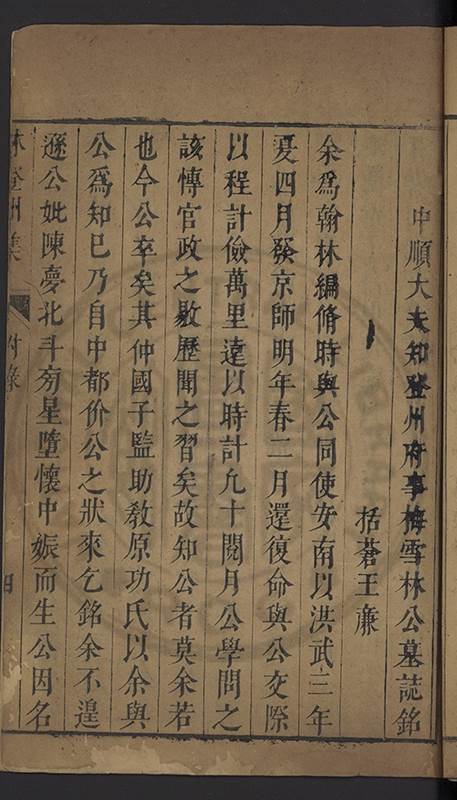 中順大夫知登州府事梅雪林公墓誌銘
括蒼王廉
余爲翰林編脩時與公同使安南以洪武三年
夏四月發京師明年春二月還復命與公交際
以程計儉萬里遠以時計允十閱月公學問之
該愽官政之敭歷聞之習矣故知公者莫余若
也今公卒矣其仲國子監助敎原功氏以余與
公爲知已乃自中都价公之狀來乞銘余不遑
遜公妣陳夢北斗旁星墮懷中娠而生公因名
林登州集 附錄